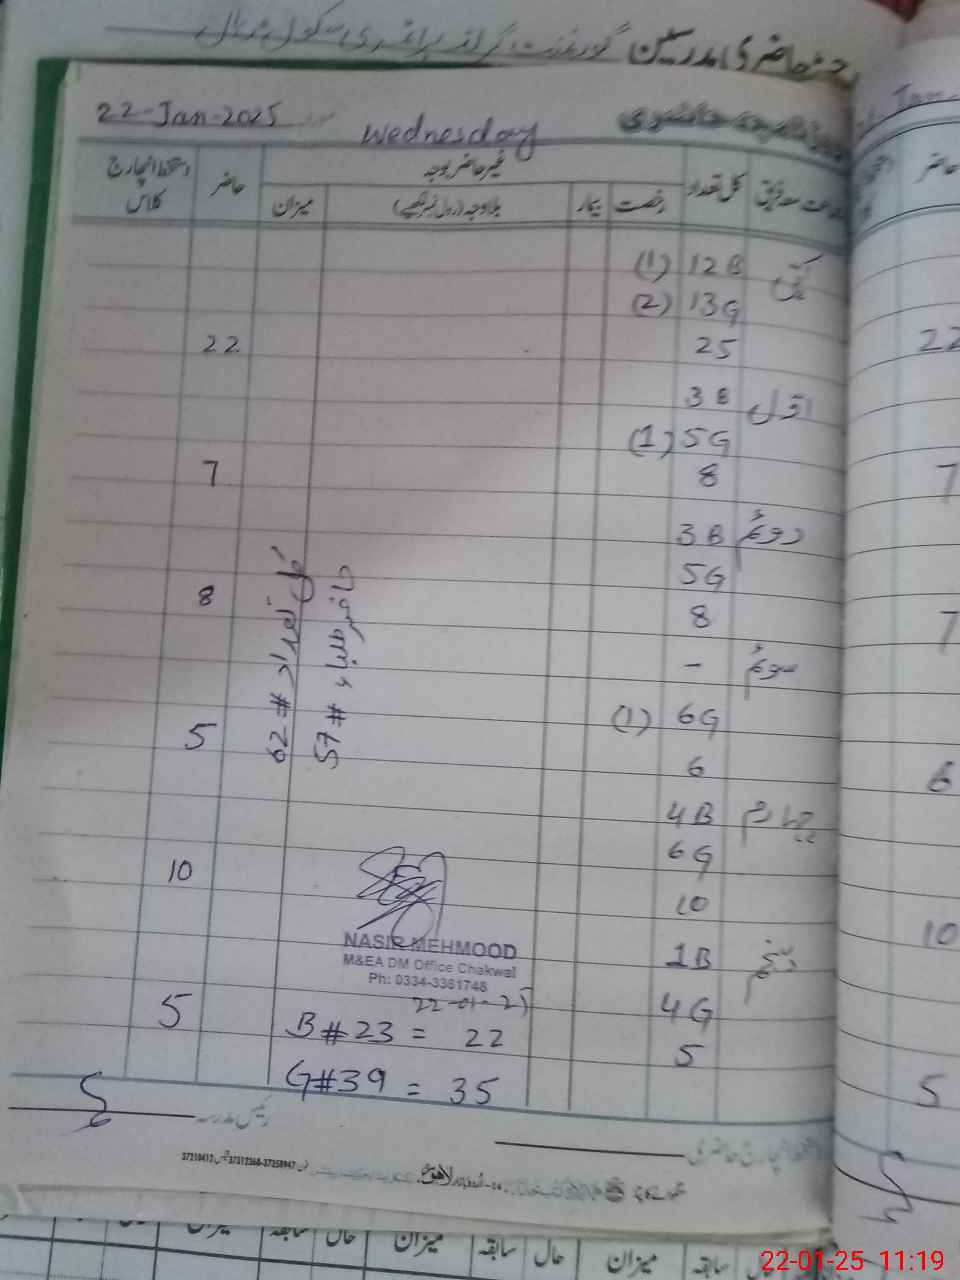 رجسٹر حاضری مدرسین گورنمنٹ گرلز پرائمری سکول
22-Jan-2025
Wednesday
کل تعداد
غیر حاضر بوجہ
حاضر
دستخط انچارج کلاس
رخصت
بیمار
بلاوجہ (رول نمبر لکھیے)
میزان
کچی
12B (1)
13G (2)
25
22
اول
3B
5G (1)
8
7
دوئم
3B
5G
8
8
سوئم
-
6G (1)
6
5
چہارم
4B
6G
10
10
پنجم
1B
4G
5
5
کل تعداد # 62
حاضر طلباء # 57
NASIR MEHMOOD
M&EA DM Office Chakwal
Ph: 0334-3381748
22-01-25
B#23 = 22
G#39 = 35
رئیس مدرسہ
لاہور
37210412
حاضر
22
7
7
6
10
5
میزان
حال
سابقہ
میزان
حال
سابقہ
میزان
سابقہ
22-01-25 11:19